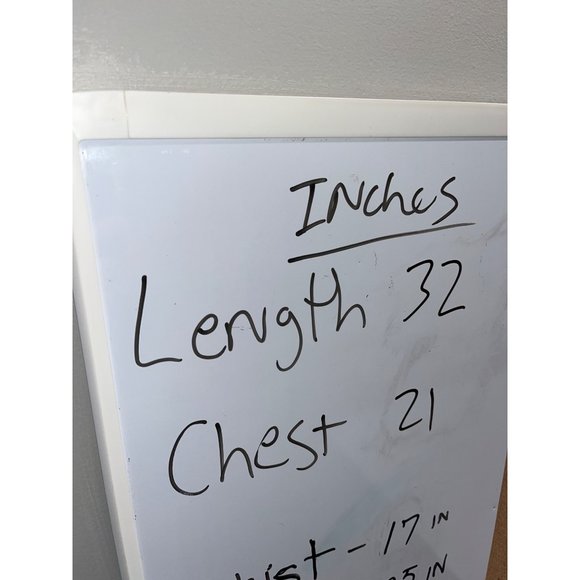 Inches
Length 32
Chest 21
- 17 IN
5 IN